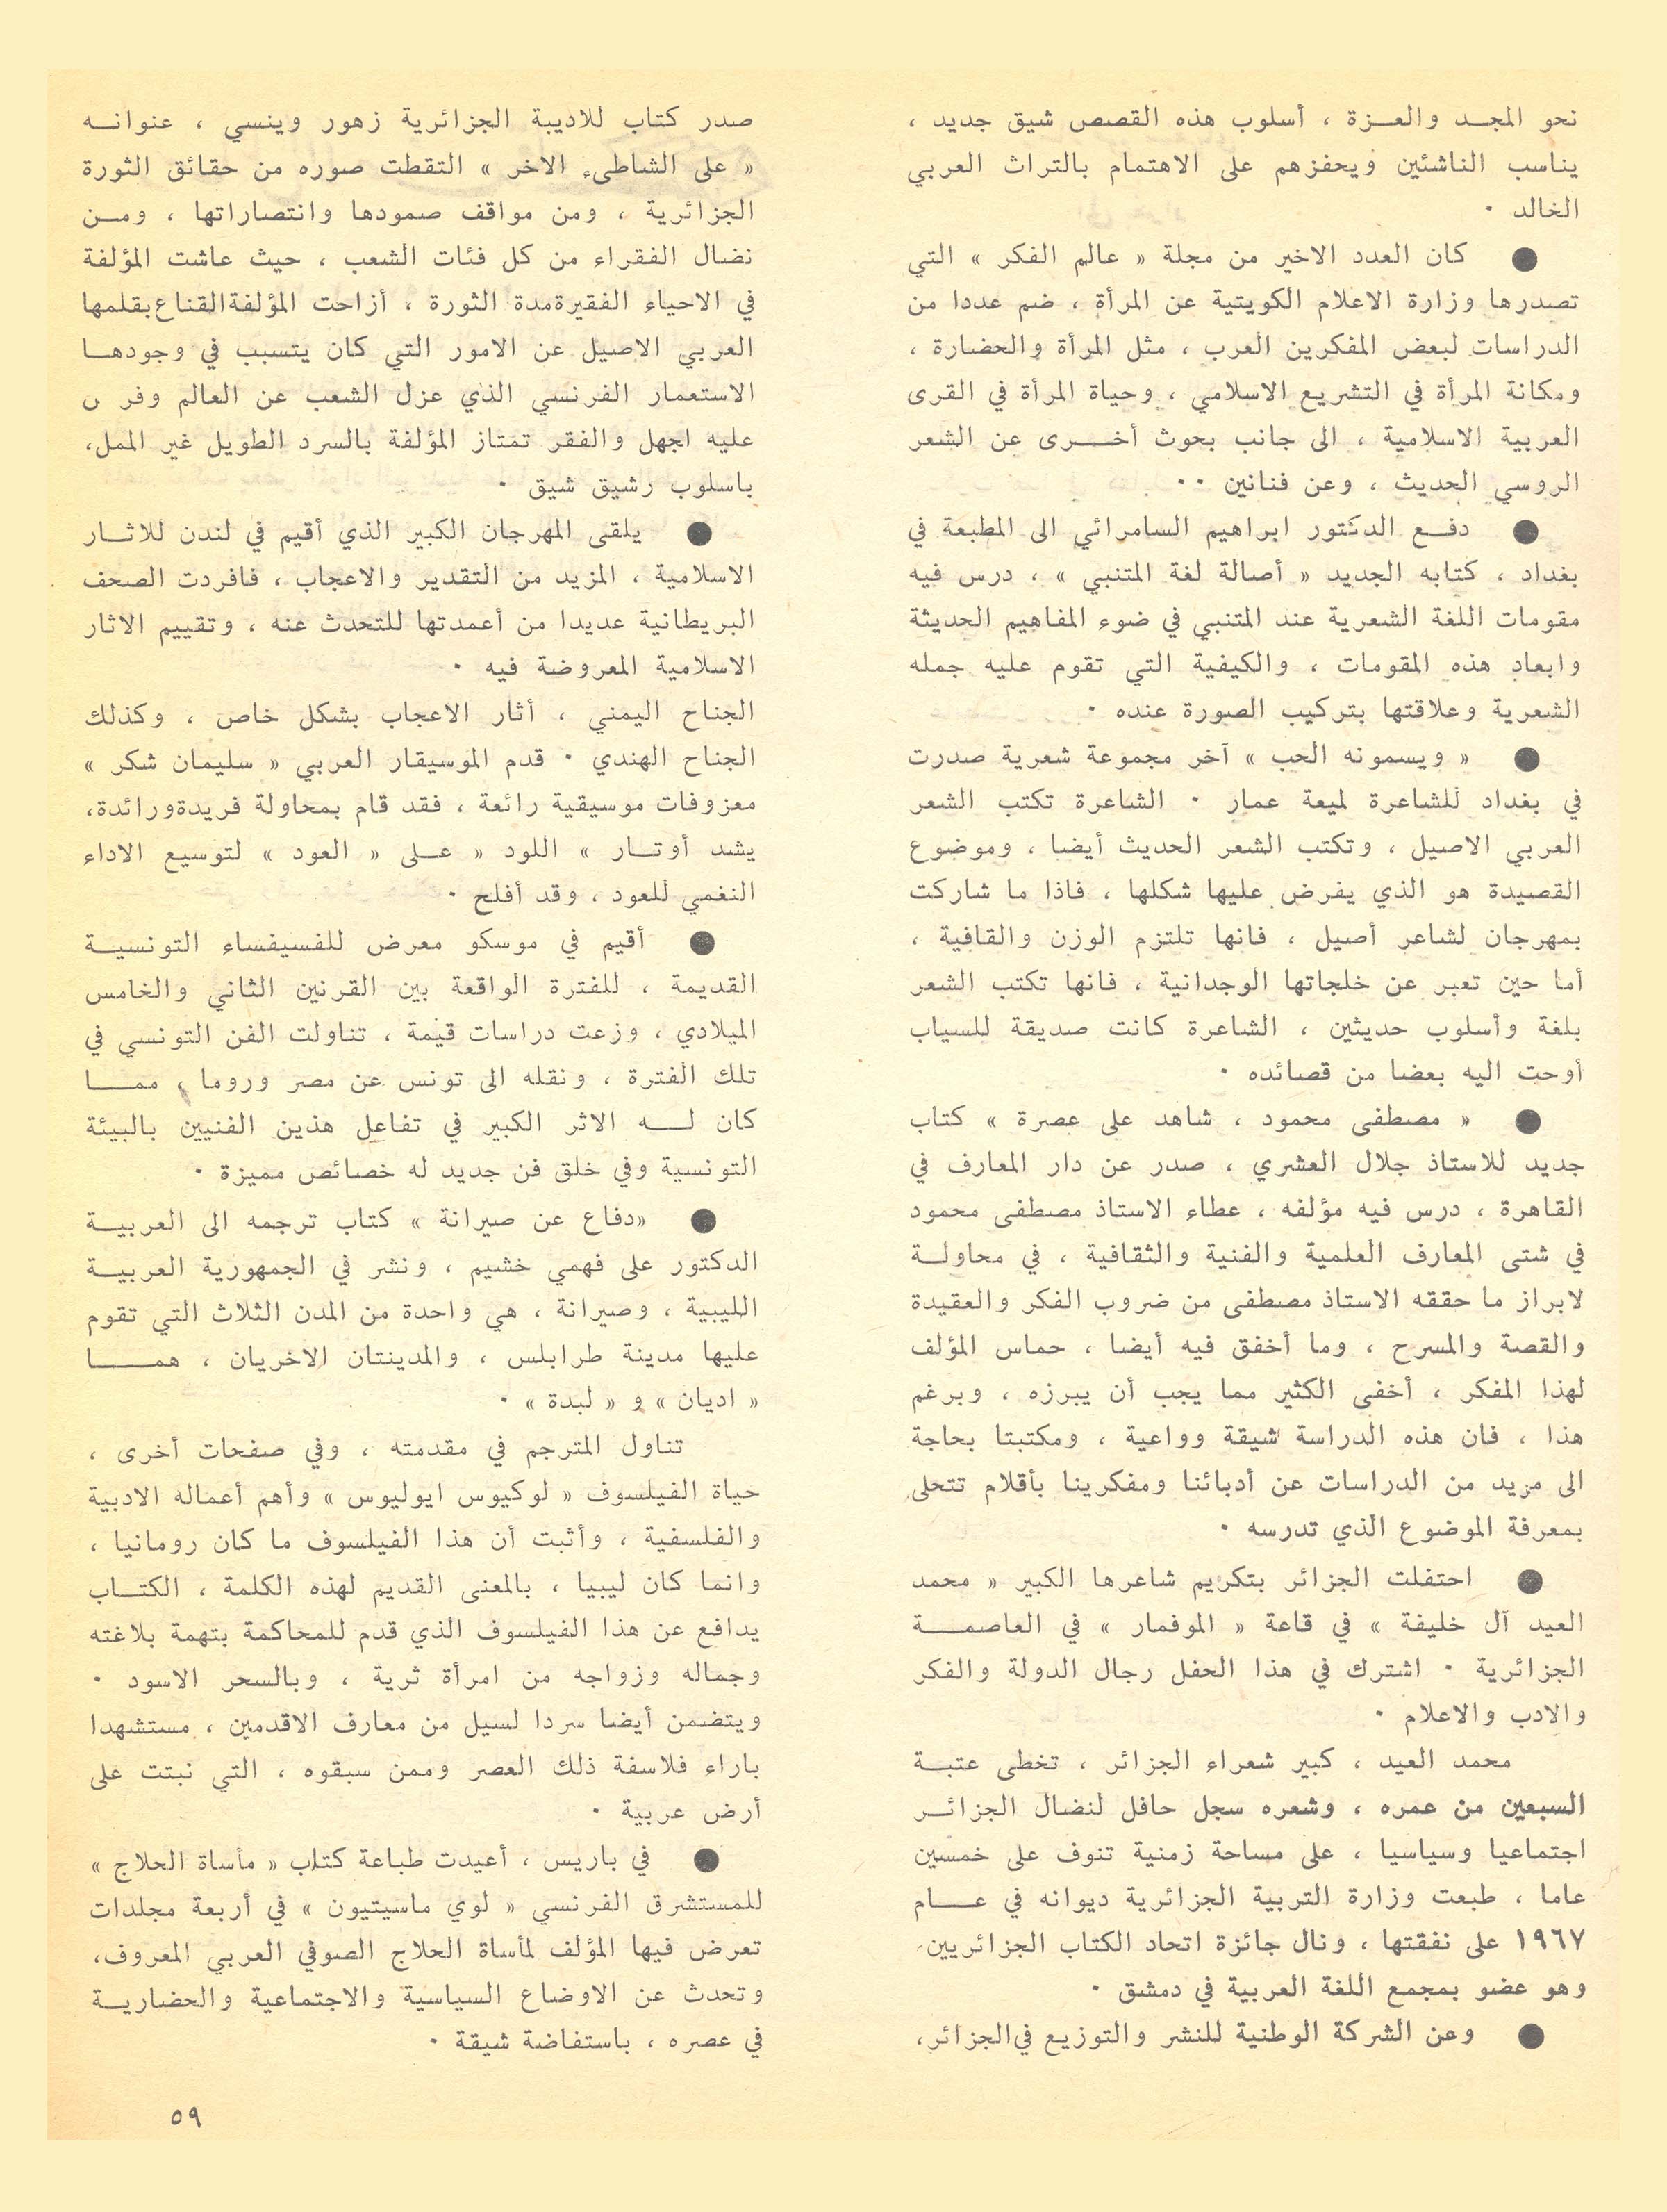 نحو المجد والعزة ، أسلوب هذه القصص شيق جديد ،
يناسب الناشئين ويحفزهم على الاهتمام بالتراث العربي
الخالد ٠
● كان العدد الاخير من مجلة « عالم الفكر » التي
تصدرها وزارة الاعلام الكويتية عن المرأة ، ضم عددا من
الدراسات لبعض المفكرين العرب ، مثل المرأة والحضارة ،
ومكانة المرأة في التشريع الاسلامي ، وحياة المرأة في القرى
العربية الاسلامية ، الى جانب بحوث أخرى عن الشعر
الروسي الحديث ، وعن فنانين ٠٠
● دفع الدكتور ابراهيم السامرائي الى المطبعة في
بغداد ، كتابه الجديد « أصالة لغة المتنبي » ، درس فيه
مقومات اللغة الشعرية عند المتنبي في ضوء المفاهيم الحديثة
وابعاد هذه المقومات ، والكيفية التي تقوم عليه جمله
الشعرية وعلاقتها بتركيب الصورة عنده ٠
● « ويسمونه الحب » آخر مجموعة شعرية صدرت
في بغداد للشاعرة لميعة عمار ٠ الشاعرة تكتب الشعر
العربي الاصيل ، وتكتب الشعر الحديث أيضا ، وموضوع
القصيدة هو الذي يفرض عليها شكلها ، فاذا ما شاركت
بمهرجان لشاعر أصيل ، فانها تلتزم الوزن والقافية ،
أما حين تعبر عن خلجاتها الوجدانية ، فانها تكتب الشعر
بلغة وأسلوب حديثين ، الشاعرة كانت صديقة للسياب
أوحت اليه بعضا من قصائده ٠
● « مصطفى محمود ، شاهد على عصرة » كتاب
جديد للاستاذ جلال العشري ، صدر عن دار المعارف في
القاهرة ، درس فيه مؤلفه ، عطاء الاستاذ مصطفى محمود
في شتى المعارف العلمية والفنية والثقافية ، في محاولة
لابراز ما حققه الاستاذ مصطفى من ضروب الفكر والعقيدة
والقصة والمسرح ، وما أخفق فيه أيضا ، حماس المؤلف
لهذا المفكر ، أخفى الكثير مما يجب أن يبرزه ، وبرغم
هذا ، فان هذه الدراسة شيقة وواعية ، ومكتبتا بحاجة
الى مزيد من الدراسات عن أدبائنا ومفكرينا بأقلام تتحلى
بمعرفة الموضوع الذي تدرسه ٠
● احتفلت الجزائر بتكريم شاعرها الكبير « محمد
العيد آل خليفة » في قاعة « الموفمار » في العاصمة
الجزائرية ٠ اشترك في هذا الحفل رجال الدولة والفكر
والادب والاعلام ٠
محمد العيد ، كبير شعراء الجزائر ، تخطى عتبة
السبعين من عمره ، وشعره سجل حافل لنضال الجزائر
اجتماعيا وسياسيا ، على مساحة زمنية تنوف على خمسين
عاما ، طبعت وزارة التربية الجزائرية ديوانه في عام
١٩٦٧ على نفقتها ، ونال جائزة اتحاد الكتاب الجزائريين،
وهو عضو بمجمع اللغة العربية في دمشق ٠
● وعن الشركة الوطنية للنشر والتوزيع في الجزائر،
صدر كتاب للاديبة الجزائرية زهور وينسي ، عنوانه
« على الشاطىء الاخر » التقطت صوره من حقائق الثورة
الجزائرية ، ومن مواقف صمودها وانتصاراتها ، ومن
نضال الفقراء من كل فئات الشعب ، حيث عاشت المؤلفة
في الاحياء الفقيرة مدة الثورة ، أزاحت المؤلفة القناع بقلمها
العربي الاصيل عن الامور التي كان يتسبب في وجودها
الاستعمار الفرنسي الذي عزل الشعب عن العالم
عليه اجهل والفقر تمتاز المؤلفة بالسرد الطويل غير الممل،
باسلوب رشيق شيق ٠
● يلقى المهرجان الكبير الذي أقيم في لندن للاثار
الاسلامية ، المزيد من التقدير والاعجاب ، فافردت الصحف
البريطانية عديدا من أعمدتها للتحدث عنه ، وتقييم الاثار
الاسلامية المعروضة فيه ٠
الجناح اليمني ، أثار الاعجاب بشكل خاص ، وكذلك
الجناح الهندي ٠ قدم الموسيقار العربي « سليمان شكر »
معزوفات موسيقية رائعة ، فقد قام بمحاولة فريدة ورائدة،
يشد أوتار » اللود « على « العود » لتوسيع الاداء
النغمي للعود ، وقد أفلح ٠
● أقيم في موسكو معرض للفسيفساء التونسية
القديمة ، للفترة الواقعة بين القرنين الثاني والخامس
الميلادي ، وزعت دراسات قيمة ، تناولت الفن التونسي في
تلك الفترة ، ونقله الى تونس عن مصر وروما ، مما
كان له الاثر الكبير في تفاعل هذين الفنيين بالبيئة
التونسية وفي خلق فن جديد له خصائص مميزة ٠
● «دفاع عن صيرانة » كتاب ترجمه الى العربية
الدكتور على فهمي خشيم ، ونشر في الجمهورية العربية
الليبية ، وصيرانة ، هي واحدة من المدن الثلاث التي تقوم
عليها مدينة طرابلس ، والمدينتان الاخريان ، هما
« اديان » و « لبدة » ٠
تناول المترجم في مقدمته ، وفي صفحات أخرى ،
حياة الفيلسوف « لوكيوس ايوليوس » وأهم أعماله الادبية
والفلسفية ، وأثبت أن هذا الفيلسوف ما كان رومانيا ،
وانما كان ليبيا ، بالمعنى القديم لهذه الكلمة ، الكتاب
يدافع عن هذا الفيلسوف الذي قدم للمحاكمة بتهمة بلاغته
وجماله وزواجه من امرأة ثرية ، وبالسحر الاسود ٠
ويتضمن أيضا سردا لسيل من معارف الاقدمين ، مستشهدا
باراء فلاسفة ذلك العصر وممن سبقوه ، التي نبتت على
أرض عربية ٠
● في باريس ، أعيدت طباعة كتاب « مأساة الحلاج »
للمستشرق الفرنسي « لوي ماسيتيون » في أربعة مجلدات
تعرض فيها المؤلف لمأساة الحلاج الصوفي العربي المعروف،
وتحدث عن الاوضاع السياسية والاجتماعية والحضارية
في عصره ، باستفاضة شيقة ٠
٥٩